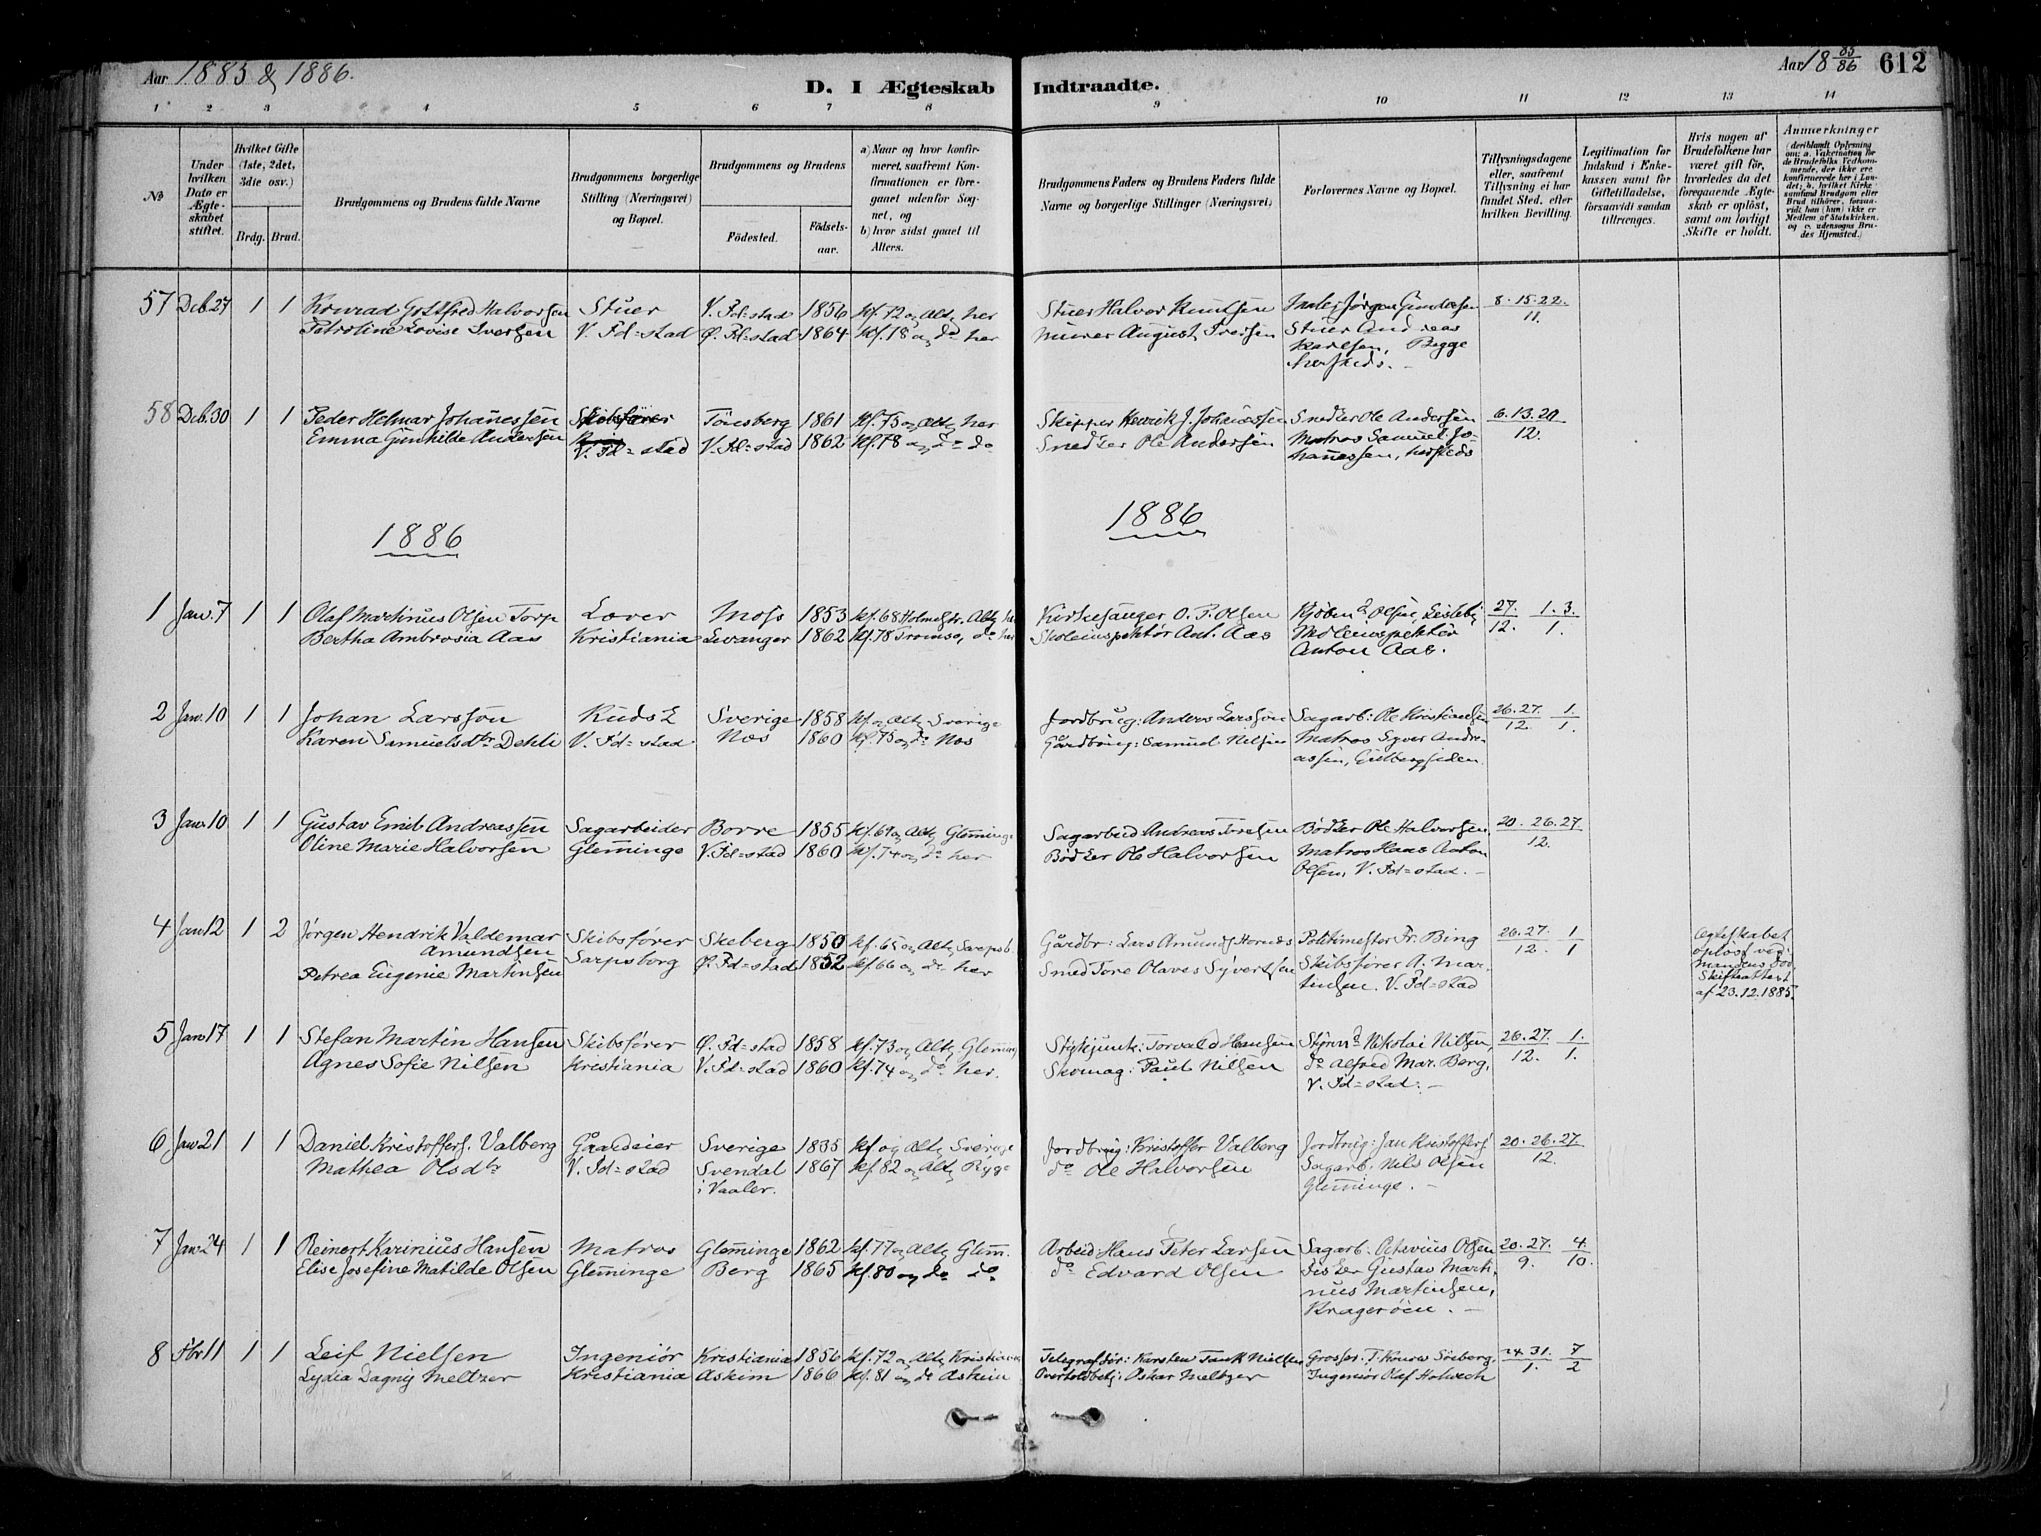 Aar 1885 & 1886.
D. I Ægteskab Indtraadte.
Aar 18 85/86 612
1 2 3 4 5 6 7 8 9 10 11 12 13 14
No
Under hvilken Dato er Ægteskabet stiftet.
Hvilket Gifte (1ste, 2det, 3die osv.)
Brdg. Brud.
Brudgommens og Brudens fulde Navne
Brudgommens borgerlige Stilling (Næringsvei) og Bopæl.
Brudgommens og Brudens
Födested. Födselsaar.
a) Naar og hvor konfirmeret, saafremt Konfirmationen er foregaaet udenfor Sognet, og
b) hvor sidst gaaet til Alters.
Brudgommens Faders og Brudens Faders fulde Navne og borgerlige Stillinger (Næringsvei)
Forlovernes Navne og Bopæl.
Tillysningsdagene eller, saafremt Tillysning ei har fundet Sted, efter hvilken Bevilling.
Legitimation for Indskud i Enkekassen samt for Giftetilladelse, forsaavidt saadan tiltrænges.
Hvis nogen af Brudefolkene har været gift för, hvorledes da det foregaaende Ægteskab er oplöst, samt om lovligt Skifte er holdt.
Anmerkninger
(deriblandt Oplysning om: a. Vakcination for de Brudefolks Vedkommende, der ikke ere konfirmerede her i Landet; b. hvilket Kirkesamfund Brudgom eller Brud tilhörer, forsaavidt han (hun) ikke er Medlem af Statskirken, og c. udensogns Brudes Hjemsted.)
57 Deb. 27 1 1 Konrad Gottfred Halvorsen Stuer V. Fd=stad 1856 kf. 72 og Alt. her Stuer Halvor Knutsen Jørgen Gundersen 8. 15. 22.
Petroline Lovise Iversen V. Fd=stad Ø. Fd=stad 1864 kf. 18 og do her Murer August Iversen Stuer Andreas 11.
Karlsen, Begge
hersteds.
58 Deb. 30 1 1 Peder Helmar Johanessen Skibsfører Tönsberg 1861 kf. 75 og Alt. her Skipper Henrik J. Johanessen Snedker Ole Andersen 6. 13. 20
Emma Gunhilde Andersen V. Fd=stad V. Fd=stad 1862 kf. 78 og do do Snedker Ole Andersen Matros Samuel Jo- 12.
hanessen, hersteds
1886 1886
1 Jan. 7 1 1 Olaf Martinus Olsen Torp Lærer Moss 1853 kf. 68 Holmestr. Alt. her Kirkesanger O. P. Olsen Kjøbmd Olsen, Lisleby 27. 1. 3.
Bertha Ambrosia Aas Kristiania Levanger 1862 kf. 78 Tromsø, do her Skoleinspektør Ant. Aas 12. 1.
Anton Aas.
2 Jan. 10 1 1 Johan Larsson Kudsk Sverige 1858 kf. og Alt. Sverige Jordbrug: Anders Larsson Sagarb: Ole Kristiansen 26. 27. 1.
Karen Samuelsdtr Dehli V. Fd=stad Næs 1860 kf. 75 og do Næs Gårdbrug: Samuel Nilsen Matros Syver Andre- 12 1.
assen, Gulbergsiden
3 Jan. 10 1 1 Gustav Emil Andreassen Sagarbeider Borre 1855 kf. 69 og Alt. Glemminge Sagarbeid Andreas Bødker Ole Halvorsen, 20. 26. 27.
Oline Marie Halvorsen Glemminge V. Fd=stad 1860 kf. 74 og do her Bødker Ole Halvorsen Matros Hans Anton 12.
Olsen, V. Fd=stad.
4 Jan. 12 1 2 Jørgen Hendrik Valdemar Skibsfører Skeberg 1850 kf. 65 og Alt. Sarpsb. Gårdbr: Lars Amunds. Hornæs Politimester Fr. Bing 26. 27. 1 Ægteskabet
Amundsen Sarpsborg Ø. Fd=stad 1852 kf. 66 og do her Smed Tore Olaves Syvertsen Skibsfører A. Mar- 12. 1 opløst ved
Petrea Eugenie Martinsen tinsen. V. Fd=stad Mandens Død.
Skifteattest
af 23.12.1885.
5 Jan. 17 1 1 Stefan Martin Hansen Skibsfører Ø. Fd=stad 1858 kf. 73 og Alt. Glemming Stykjunk: Torvald Hansen Styrmd Nikolai Nilsen, 26. 27. 1.
Agnes Sofie Nilsen Kristiania V. Fd=stad 1860 kf. 74 og do her. Skomag: Paul Nilsen do Alfred Mar. Berg, 12. 1.
V. Fd=stad.
6 Jan. 21 1 1 Daniel Kristoffers. Valberg Gaardeier Sverige 1835 kf og Alt. Sverige Jordbrug: Kristoffer Valberg Jordbrug: Jan Kristoffers. 20. 26. 27
Mathea Olsdtr V. Fd=stad Svendal 1867 kf. 82 og Alt. Rygge do Ole Halvorsen Sagarb. Nils Olsen 12.
i Vaaler. Glemminge.
7 Jan. 24 1 1 Reinert Karinius Hansen Matros Glemminge 1862 kf. 77 og Alt. Glem. Arbeid Hans Peter Larsen Sagarb: Octavius Olsen 20. 27. 4.
Elise Josefine Matilde Olsen Glemminge Berg 1865 kf. 80 og do do do Edvard Olsen Fisker Gustav Marti- 9. 10.
nus Martinsen,
Kragerøen.
8 Fbr 11 1 1 Leif Nielsen Ingeniør Kristiania 1856 kf. 72 og Alt. Kristiania Telegrafdir: Karsten Tank Nielsen Grosser. T. Søeberg. 24 31. 7
Lydia Dagny Meltzer Kristiania Askim 1866 kf. 81 og do Askim Overtoldbetj: Oskar Meltzer Ingeniør Olaf 1. 2